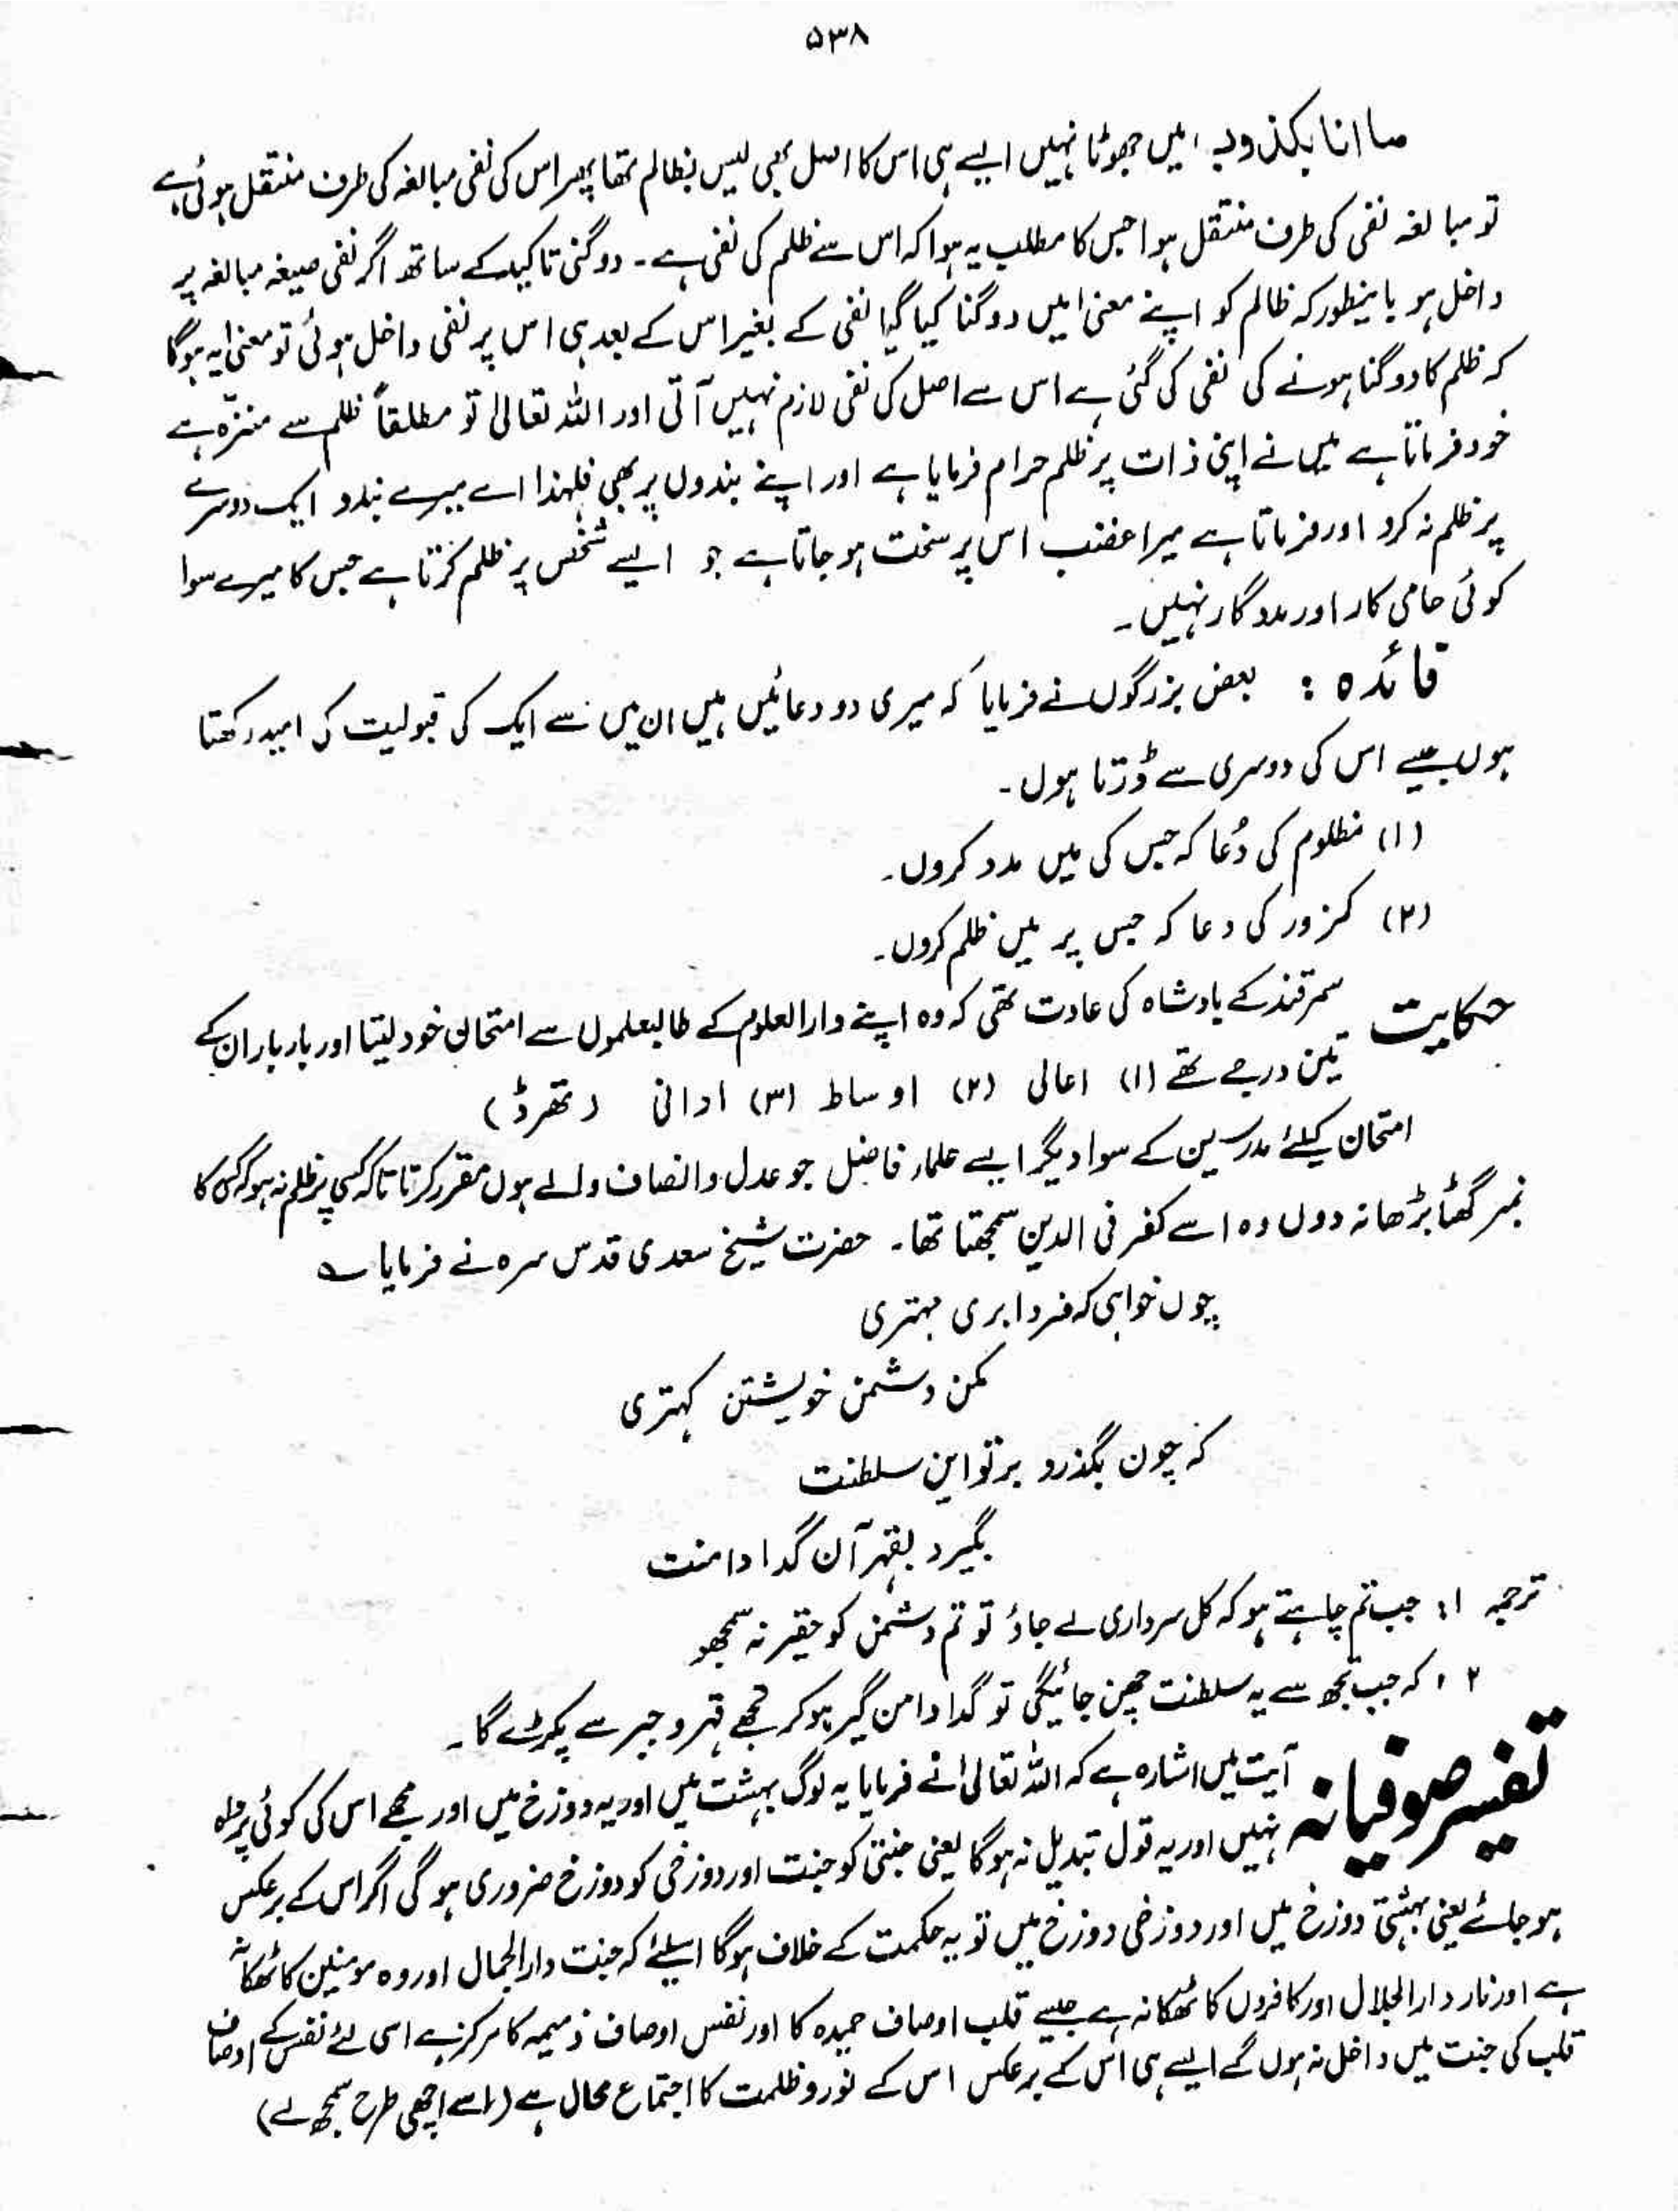 ۵۳۸
ما انا بکذوب، میں جھوٹا نہیں ایسے ہی اس کا اصل بھی لیس بظالم تھا پھر اس کی نفی مبالغہ کی طرف منتقل ہوئی ہے
تو مبالغہ نفی کی طرف منتقل ہوا جس کا مطلب یہ ہوا کہ اس سے ظلم کی نفی ہے۔ دوگنی تاکید کے ساتھ اگر نفی صیغہ مبالغہ پر
داخل ہو باینطور کہ ظالم کو اپنے معنیٰ میں دوگنا کیا گیا نفی کے بغیر اس کے بعد ہی اس پر نفی داخل ہوئی تو معنیٰ یہ ہوگا
کہ ظلم کا دوگنا ہونے کی نفی کی گئی ہے اس سے اصل کی نفی لازم نہیں آتی اور اللہ تعالیٰ تو مطلقاً ظلم سے منزّہ ہے
خود فرماتا ہے میں نے اپنی ذات پر ظلم حرام فرمایا ہے اور اپنے بندوں پر بھی فلہٰذا اے میرے بندو ایک دوسرے
پر ظلم نہ کرو اور فرماتا ہے میرا غضب اس پر سخت ہو جاتا ہے جو ایسے شخص پر ظلم کرتا ہے جس کا میرے سوا
کوئی حامی کار اور مددگار نہیں۔
فائدہ : بعض بزرگوں نے فرمایا کہ میری دو دعائیں ہیں ان میں سے ایک کی قبولیت کی امید رکھتا
ہوں جیسے اس کی دوسری سے ڈرتا ہوں۔
(۱) مظلوم کی دُعا کہ جس کی میں مدد کروں۔
(۲) کمزور کی دعا کہ جس پر میں ظلم کروں۔
حکایت سمرقند کے بادشاہ کی عادت تھی کہ وہ اپنے دارالعلوم کے طالبعلموں سے امتحان خود لیتا اور بار بار ان کے
تین درجے تھے (۱) اعالی (۲) اوساط (۳) ادانی (تھرڈ)
امتحان کیلئے مدرسین کے سوا دیگر ایسے علماء فاضل جو عدل و انصاف والے ہوں مقرر کرتا تاکہ کسی پر ظلم نہ ہو کہ کس کا
نمبر گھٹا بڑھا نہ دوں وہ اسے کفر فی الدین سمجھتا تھا۔ حضرت شیخ سعدی قدس سرہ نے فرمایا ؎
چوں خواہی کہ فردا بری مہتری
مکن دشمن خویشتن کہتری
کہ چون بگذرد بر تو این سلطنت
بگیرد بقہر آن گدا دامنت
ترجمہ ۱: جب تم چاہتے ہو کہ کل سرداری لے جاؤ تو تم دشمن کو حقیر نہ سمجھو
۲، کہ جب تجھ سے یہ سلطنت چھن جائیگی تو گدا دامن گیر ہو کر تجھے قہر و جبر سے پکڑے گا۔
تفسیر صوفیانہ آیت میں اشارہ ہے کہ اللہ تعالیٰ نے فرمایا یہ لوگ بہشت میں اور یہ دوزخ میں اور مجھے اس کی کوئی پرواہ
نہیں اور یہ قول تبدیل نہ ہوگا یعنی جنتی کو جنت اور دوزخی کو دوزخ ضروری ہو گی اگر اس کے برعکس
ہو جائے یعنی بہشتی دوزخ میں اور دوزخی دوزخ میں تو یہ حکمت کے خلاف ہوگا اسلئے کہ جنت دارالجمال اور وہ مومنین کا ٹھکانہ
ہے اور نار دارالجلال اور کافروں کا ٹھکانہ ہے جیسے قلب اوصاف حمیدہ کا اور نفس اوصاف ذمیمہ کا مرکز ہے اسی لئے نفس کے اوصاف
قلب کی جنت میں داخل نہ ہوں گے ایسے ہی اس کے برعکس اس کے نور و ظلمت کا اجتماع محال ہے (اسے اچھی طرح سمجھ لے)